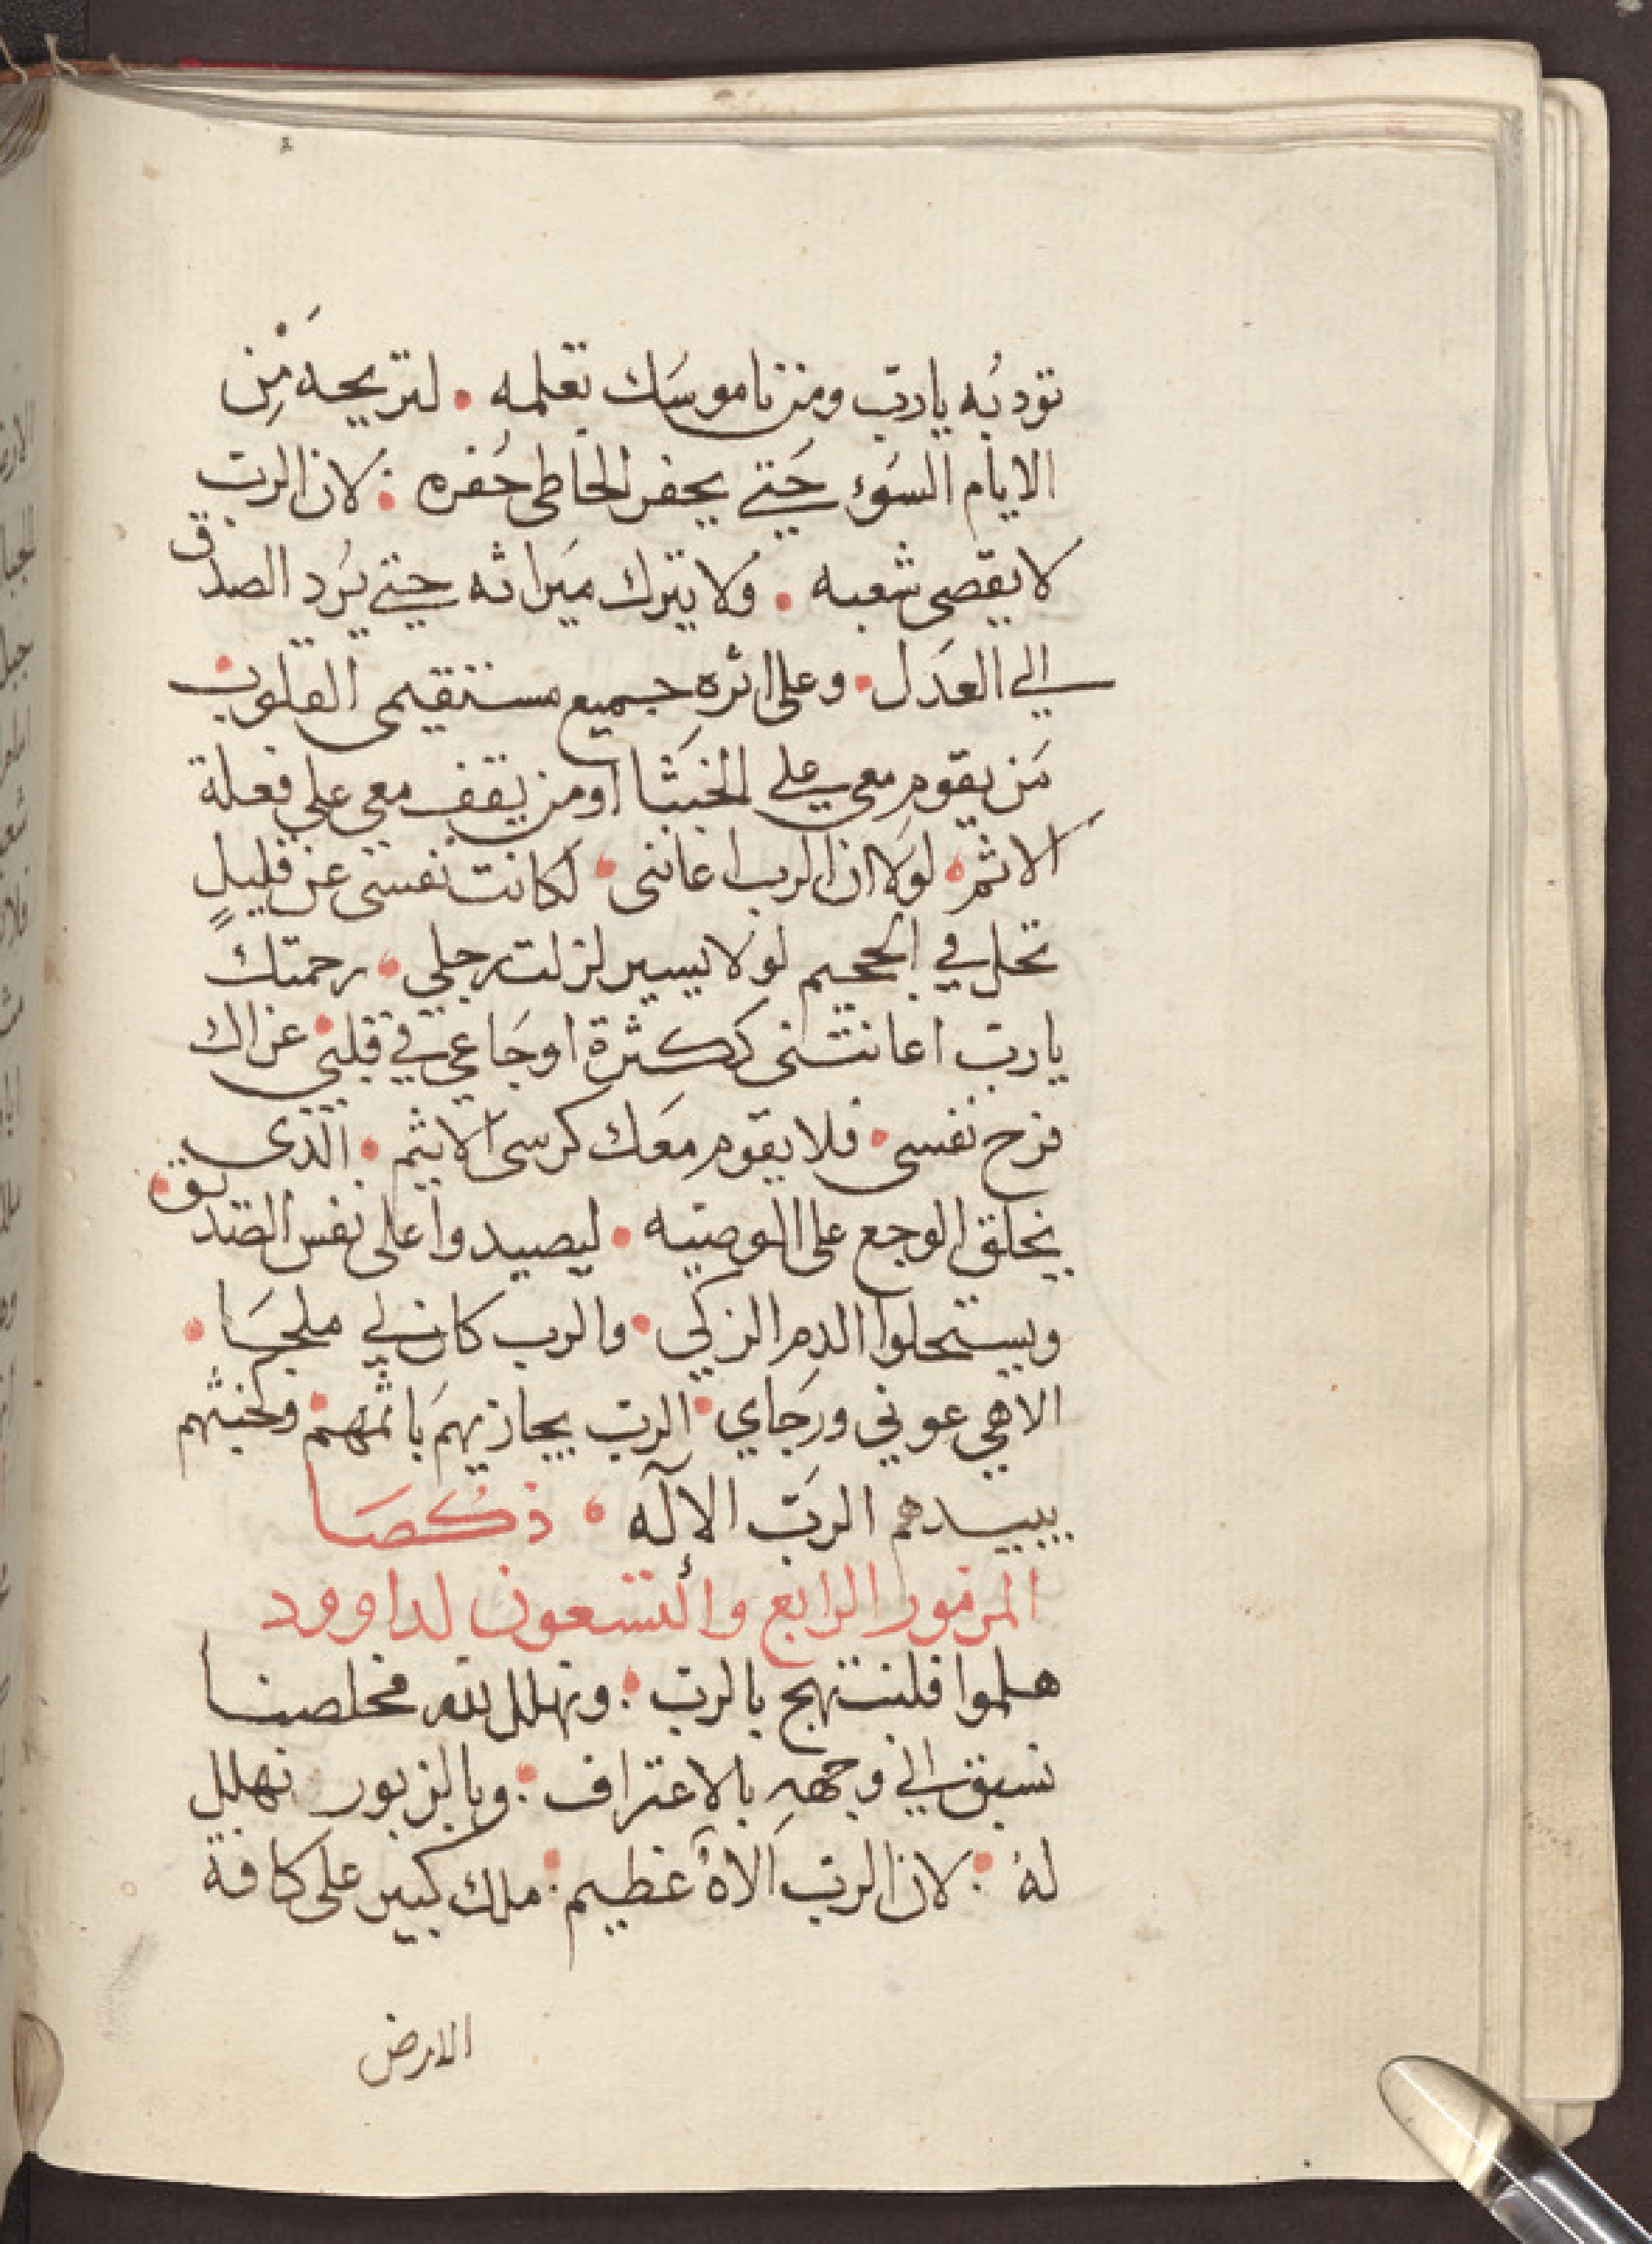 تودبُه يارب ومن ناموسَك تعلمه • لتريحهَ مِن
الايام السَوء حَتي يحفر الخاطى حُفره : لان الرب
لا يقصى شعبه • وَلا يترك ميَراثه حتي يُرد الصدق
الي العدَل • وعلى اثره جميع مستقيمى القلوب •
مَن يقوم معي علي الخبَثا او من يقف معي علي فعلة
الاثم • لولَا ان الرب اعاننى • لكانت نفسى عن قليلٍ
تحل في الجحيم لولا يسير لزلت رجلي • رحمتك
يارب اعانتنى ككثرة اوجَاعي في قلبي • عزاك
فرح نفسى • فلا يقوم معَك كرسى الاثم • الذى
يخلق الوجع على الوصيه • ليصيدوا على نفس الصديق •
ويستحلوا الدم الزكي • والرب كان لي ملجَا •
الاهي عوني ورجَاي • الرب يجازيهمَ باثمهم • وكخبثهم
يبيدهم الربَ الاله • ذكصَا
المزمور الرابع والتسعون لداوود
هلموا فلنبتهج بالرب • ونهلل لله مخلصنا
نسبق الي وجهه بالاعتراف • وبالزبور نهلل
لهُ • لان الرب الاهٌ عظيم • ملك كبير على كافة
الارض